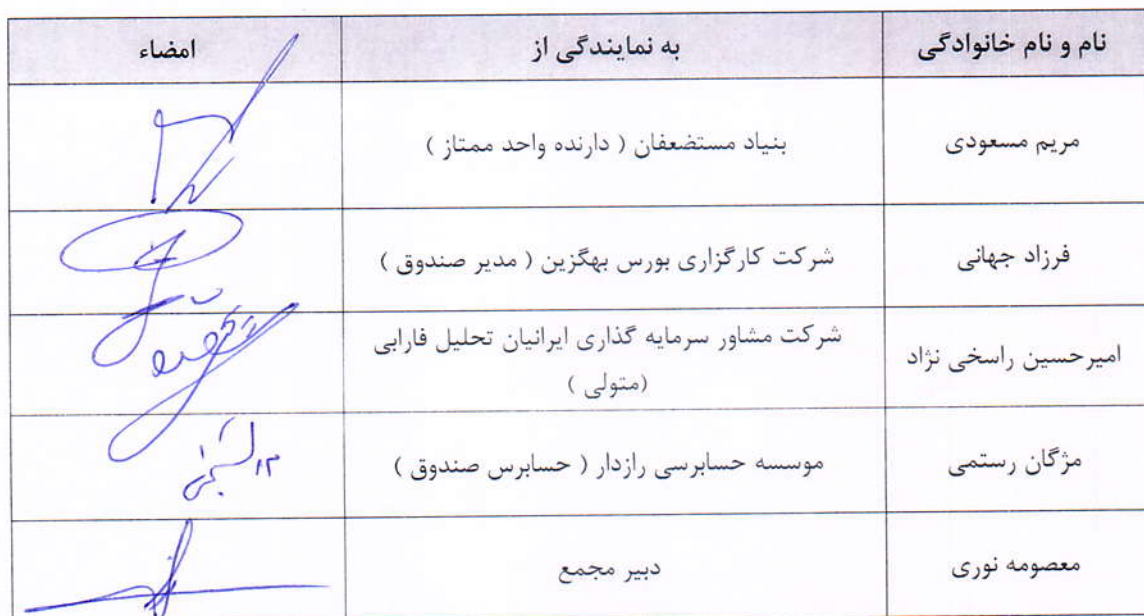 نام و نام خانوادگی به نمایندگی از امضاء
مریم مسعودی بنیاد مستضعفان ( دارنده واحد ممتاز )
فرزاد جهانی شرکت کارگزاری بورس بهگزین ( مدیر صندوق )
امیرحسین راسخی نژاد شرکت مشاور سرمایه گذاری ایرانیان تحلیل فارابی
(متولی )
مژگان رستمی موسسه حسابرسی رازدار ( حسابرس صندوق )
معصومه نوری دبیر مجمع